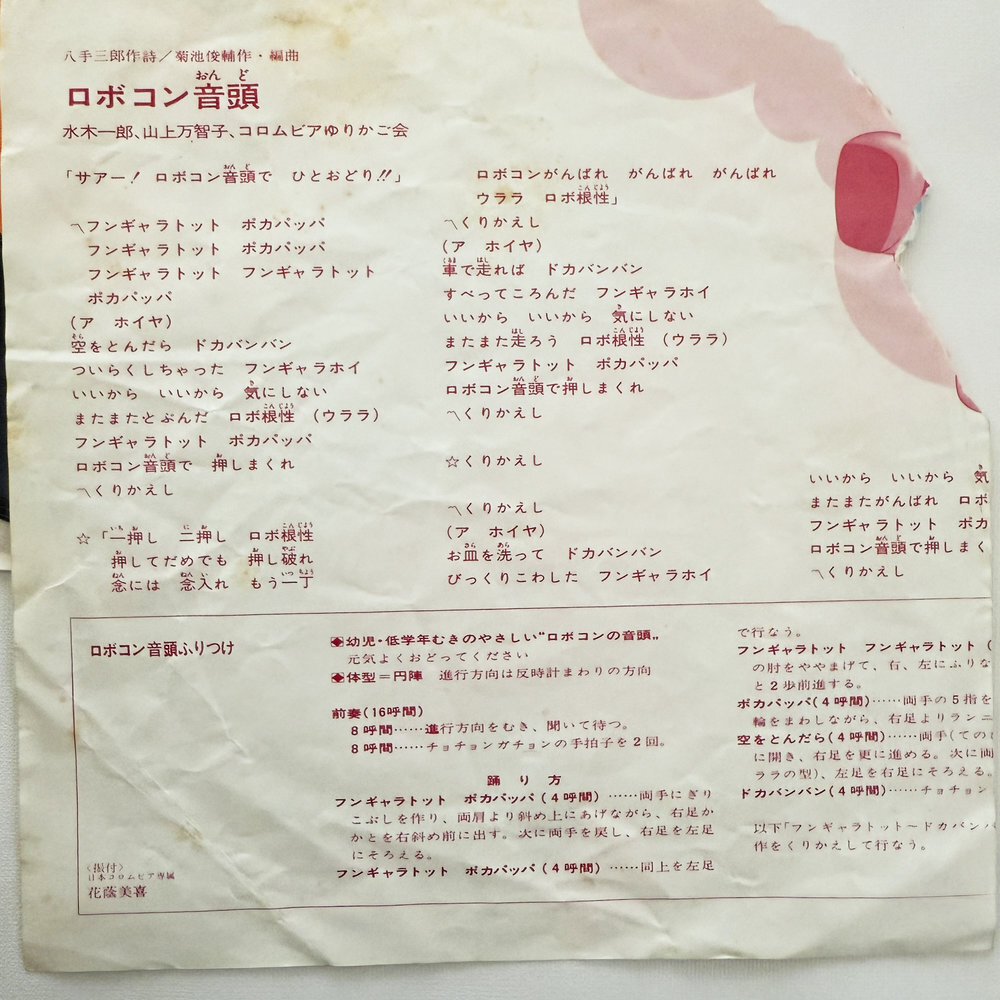 八手三郎作詩／菊池俊輔作・編曲
ロボコン音頭
水木一郎、山上万智子、コロムビアゆりかご会
「サアー！ ロボコン音頭で ひとおどり!!」
〽フンギャラトット ポカパッパ
フンギャラトット ポカパッパ
フンギャラトット フンギャラトット
ポカパッパ
(ア ホイヤ)
空をとんだら ドカバンバン
ついらくしちゃった フンギャラホイ
いいから いいから 気にしない
またまたとぶんだ ロボ根性 (ウララ)
フンギャラトット ポカパッパ
ロボコン音頭で 押しまくれ
〽くりかえし
☆「一押し 二押し ロボ根性
押してだめでも 押し破れ
念には 念入れ もう一丁
ロボコンがんばれ がんばれ がんばれ
ウララ ロボ根性」
〽くりかえし
(ア ホイヤ)
車で走れば ドカバンバン
すべってころんだ フンギャラホイ
いいから いいから 気にしない
またまた走ろう ロボ根性 (ウララ)
フンギャラトット ポカパッパ
ロボコン音頭で押しまくれ
〽くりかえし
☆くりかえし
〽くりかえし
(ア ホイヤ)
お皿を洗って ドカバンバン
びっくりこわした フンギャラホイ
いいから いいから 気
またまたがんばれ ロボ
フンギャラトット ポカ
ロボコン音頭で押しまく
〽くりかえし
ロボコン音頭ふりつけ
〈振付〉
日本コロムビア専属
花蔭美喜
◆幼児・低学年むきのやさしい“ロボコンの音頭„
元気よくおどってください
◆体型＝円陣 進行方向は反時計まわりの方向
前奏(16呼間)
8呼間……進行方向をむき、聞いて待つ。
8呼間……チョチョンガチョンの手拍子を2回。
踊り方
フンギャラトット ポカパッパ(4呼間)……両手にぎり
こぶしを作り、両肩より斜め上にあげながら、右足か
かとを右斜め前に出す。次に両手を戻し、右足を左足
にそろえる。
フンギャラトット ポカパッパ(4呼間)……同上を左足
で行なう。
フンギャラトット フンギャラトット(
の肘をややまげて、右、左にふりな
と2歩前進する。
ポカパッパ(4呼間)……両手の5指を
輪をまわしながら、右足よりランニ
空をとんだら(4呼間)……両手(てのひ
に開き、右足を更に進める。次に両
ララの型)、左足を右足にそろえる。
ドカバンバン(4呼間)……チョチョン
以下「フンギャラトット～ドカバンバ
作をくりかえして行なう。